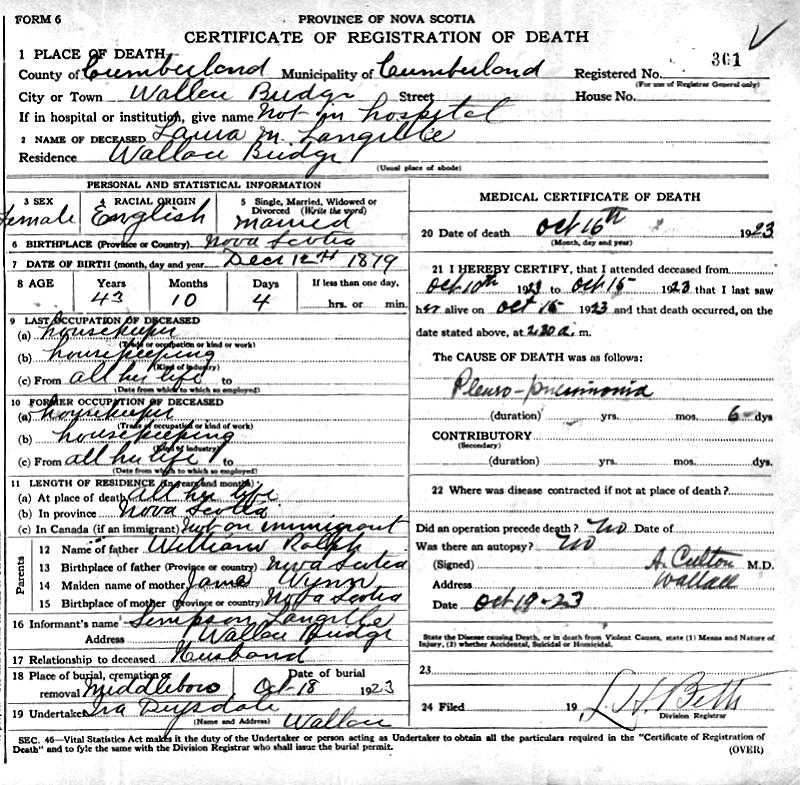 FORM 6
PROVINCE OF NOVA SCOTIA
CERTIFICATE OF REGISTRATION OF DEATH
1 PLACE OF DEATH
County of Cumberland Municipality of Cumberland Registered No. 361
(For use of Registrar General only)
City or Town Wallace Bridge Street House No.
If in hospital or institution, give name Not in hospital
2 NAME OF DECEASED Laura M. Langille
Residence Wallace Bridge
(Usual place of abode)
PERSONAL AND STATISTICAL INFORMATION
3 SEX 4 RACIAL ORIGIN 5 Single, Married, Widowed or Divorced (Write the word)
Female English Married
6 BIRTHPLACE (Province or Country) Nova Scotia
7 DATE OF BIRTH (month, day and year) Decr 12th 1879
8 AGE Years Months Days If less than one day,
43 10 4 hrs. or min.
9 LAST OCCUPATION OF DECEASED
(a) housekeeper
(Trade or occupation or kind or work)
(b) housekeeping
(Kind of industry)
(c) From all her life to
(Date from which to which so employed)
10 FORMER OCCUPATION OF DECEASED
(a) housekeeper
(Trade of occupation or kind of work)
(b) housekeeping
(Kind of industry)
(c) From all her life to
(Date from which to which so employed)
11 LENGTH OF RESIDENCE (In years and months)
(a) At place of death all her life
(b) In province Nova Scotia
(c) In Canada (if an immigrant) Not an immigrant
Parents
12 Name of father William Ralph
13 Birthplace of father (Province or country) Nova Scotia
14 Maiden name of mother Jane Wynn
15 Birthplace of mother (Province or country) Nova Scotia
16 Informant's name Simpson Langille
Address Wallace Bridge
17 Relationship to deceased Husband
18 Place of burial, cremation or removal Middleboro Date of burial Oct 18 1923
19 Undertaker Ira Drysdale Wallace
(Name and Address)
MEDICAL CERTIFICATE OF DEATH
20 Date of death Oct 16th 1923
(Month, day and year)
21 I HEREBY CERTIFY, that I attended deceased from
Oct 10th 1923 to Oct 15 1923 that I last saw
her alive on Oct 15 1923 and that death occurred, on the
date stated above, at 2.30 a. m.
The CAUSE OF DEATH was as follows:
Pleuro-pneumonia
(duration) yrs. mos. 6 dys
CONTRIBUTORY
(Secondary)
(duration) yrs. mos. dys.
22 Where was disease contracted if not at place of death?
Did an operation precede death? No Date of
Was there an autopsy? No
(Signed) A. Culton M.D.
Address Wallace
Date Oct 19-23
State the Disease causing Death, or in death from Violent Causes, state (1) Means and Nature of
Injury, (2) whether Accidental, Suicidal or Homicidal.
23
24 Filed 19 L. H. Betts
Division Registrar
SEC. 46—Vital Statistics Act makes it the duty of the Undertaker or person acting as Undertaker to obtain all the particulars required in the "Certificate of Registration of
Death" and to fyle the same with the Division Registrar who shall issue the burial permit.
(OVER)